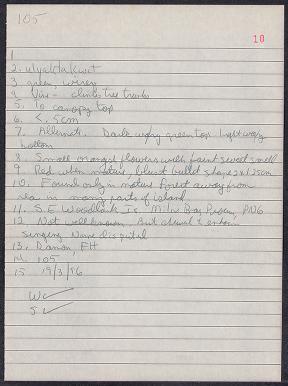 105
10
1
2. 
3 green, 
4 Vine - climbs tree trunks
5. To canopy top
6. < .5cm
7. Alternate. Dark waxy green top. Light waxy
bottom
8. Small orange flowers with faint sweet smell
9 Red when mature, blunt bullet shape 2x1.25cm
10. Found only in mature forest away from
sea in many parts of island
11. S.E. Woodlark Is. Milne Bay Province, PNG
12. Not well known. But
singing. Name disputed
13. Damon, FH
14. 105
15 19/3/96